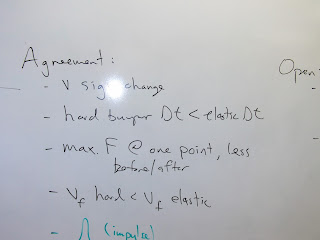 Agreement:
Open
- V sign change
- hard bumper Dt < elastic Dt
- max. F @ one point, less
before/after
- Vf hard < Vf elastic
- (impulse)